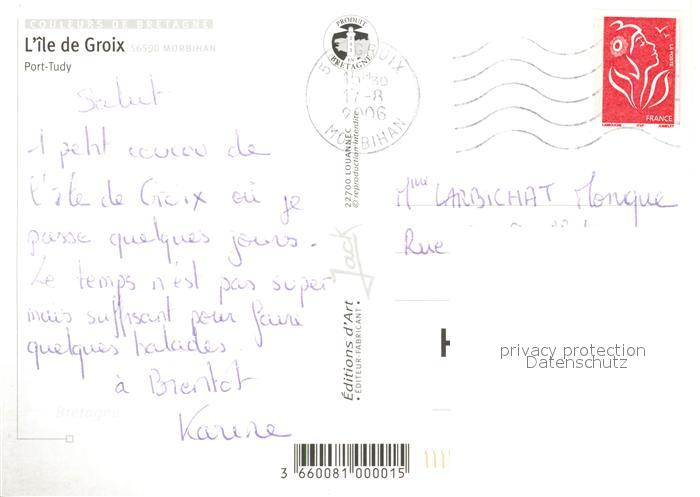 COULEURS DE BRETAGNE
L'île de Groix 56590 MORBIHAN
Port-Tudy
Salut
1 petit coucou de
l'île de Groix où je
passe quelques jours.
Le temps n'est pas super
mais suffisant pour faire
quelques balades.
à Bientôt
Karine
Bretagne
PRODUIT
EN
BRETAGNE
GROIX
15h30
17-8
2006
MORBIHAN
22700 LOUANNEC
© reproduction interdite
Jack
Editions d'Art
• ÉDITEUR-FABRICANT •
3 660081 000015
LA POSTE
FRANCE
LAMOUCHE ITVF JUMELET
Mme LARBICHAT Monique
Rue
H
privacy protection
Datenschutz